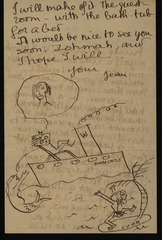 I will make of it the guest
room - with the bath-tub
for a bed
It would be nice to see you
soon. Lohmah, and
I hope I will
your Jean